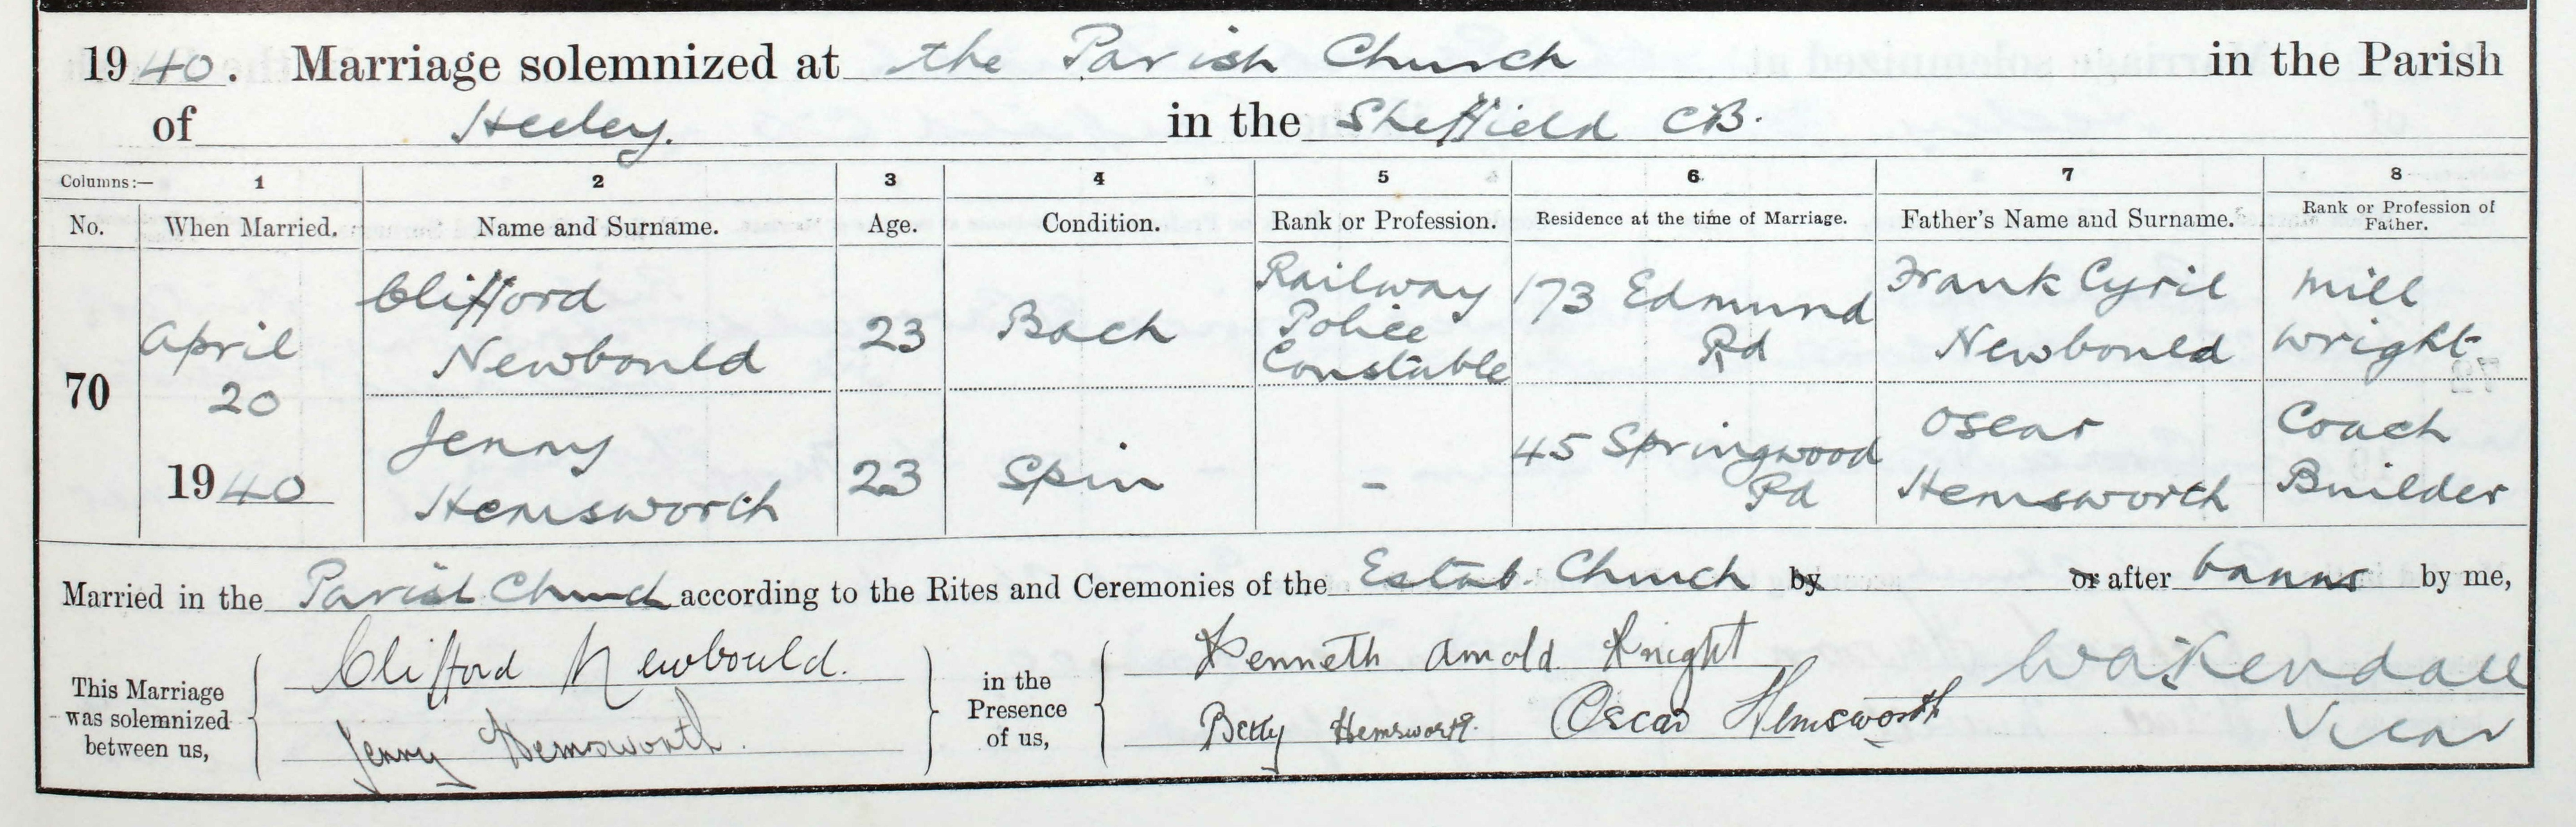 1940. Marriage solemnized at the Parish Church in the Parish
of Heeley. in the Sheffield CB.
Columns:— 1 2 3 4 5 6 7 8
No. When Married. Name and Surname. Age. Condition. Rank or Profession. Residence at the time of Marriage. Father's Name and Surname. Rank or Profession of Father.
70 April 20 1940
Clifford Newbould 23 Bach Railway Police Constable 173 Edmund Rd Frank Cyril Newbould Mill wright
Jenny Hemsworth 23 Spin - 45 Springwood Rd Oscar Hemsworth Coach Builder
Married in the Parish Church according to the Rites and Ceremonies of the Estab. Church by or after banns by me,
This Marriage was solemnized between us,
Clifford Newbould.
Jenny Hemsworth.
in the Presence of us,
Kenneth Arnold Knight
Betty Hemsworth. Oscar Hemsworth
Kendall
Vicar